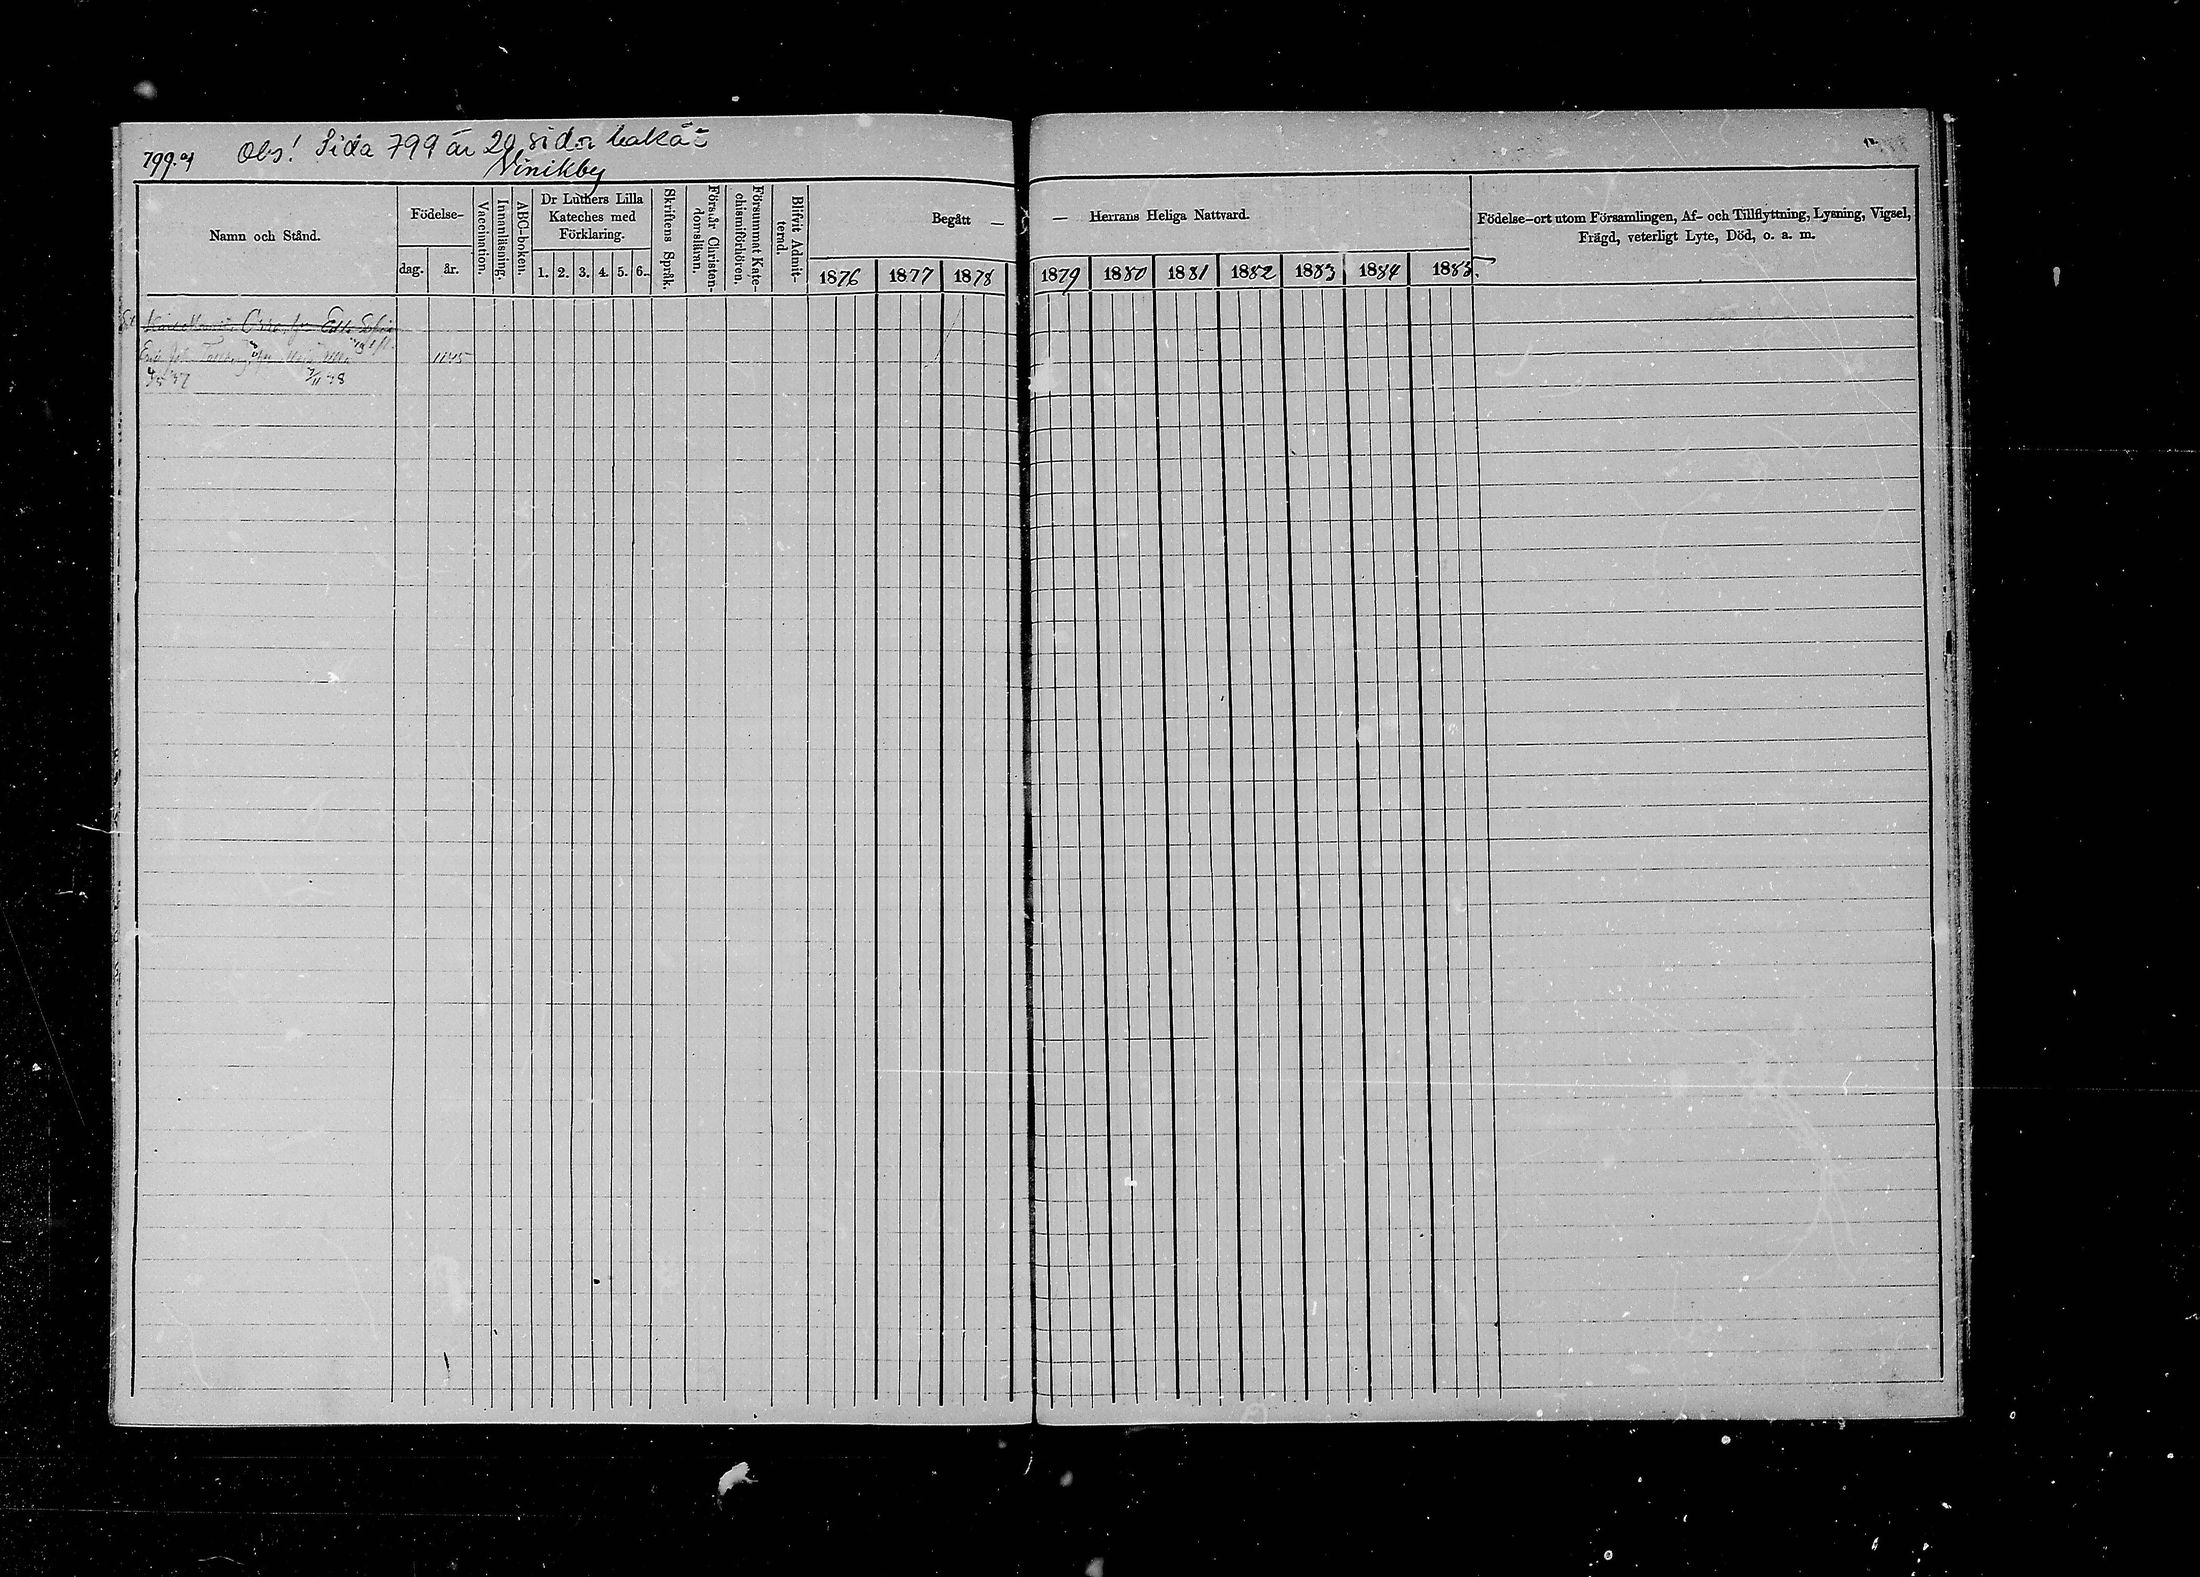 799.a)
Obs! Sida 799 är 20 sidor bakåt
Vinikby
Namn och Stånd.
Födelse-
dag.
år.
Vaccination.
Innanläsning.
ABC-boken.
Dr Luthers Lilla
Kateches med
Förklaring.
1. 2. 3. 4. 5. 6.
Skriftens Språk.
Förstår Christen-
domsläran.
Försummat Kate-
chismiförhören.
Blifvit Admit-
terad.
Begått —
1876 1877 1878
— Herrans Heliga Nattvard.
1879 1880 1881 1882 1883 1884 1885.
Födelse-ort utom Församlingen, Af- och Tillflyttning, Lysning, Vigsel,
Frägd, veterligt Lyte, Död, o. a. m.
Sofia
1845